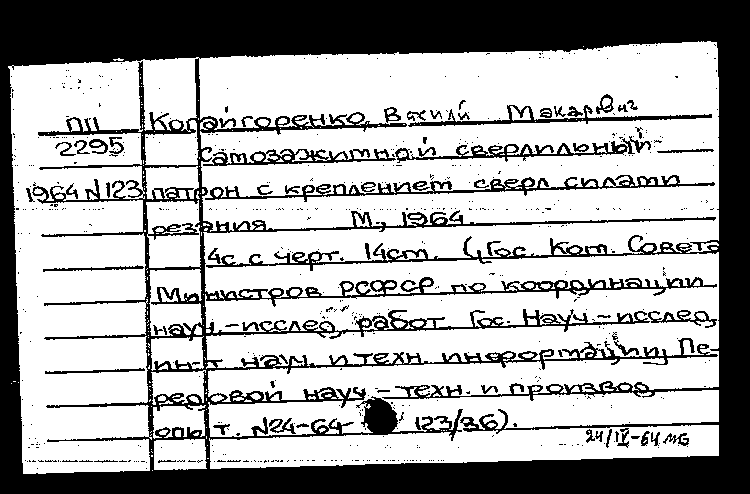 ПП Когайгоренко, Василий Макарович
2295 Самозажимной сверлильный
1964 N123 патрон с креплением сверл силами
резания. М., 1964.
4с. с черт. 14см. (Гос. Ком. Совета
Министров РСФСР по координации
науч.-исслед. работ. Гос. Науч.-исслед.
ин-т науч. и техн. информации. Пе-
редовой науч.-техн. и производ.
опыт. N24-64- 123/36).
24/IV-64 МБ